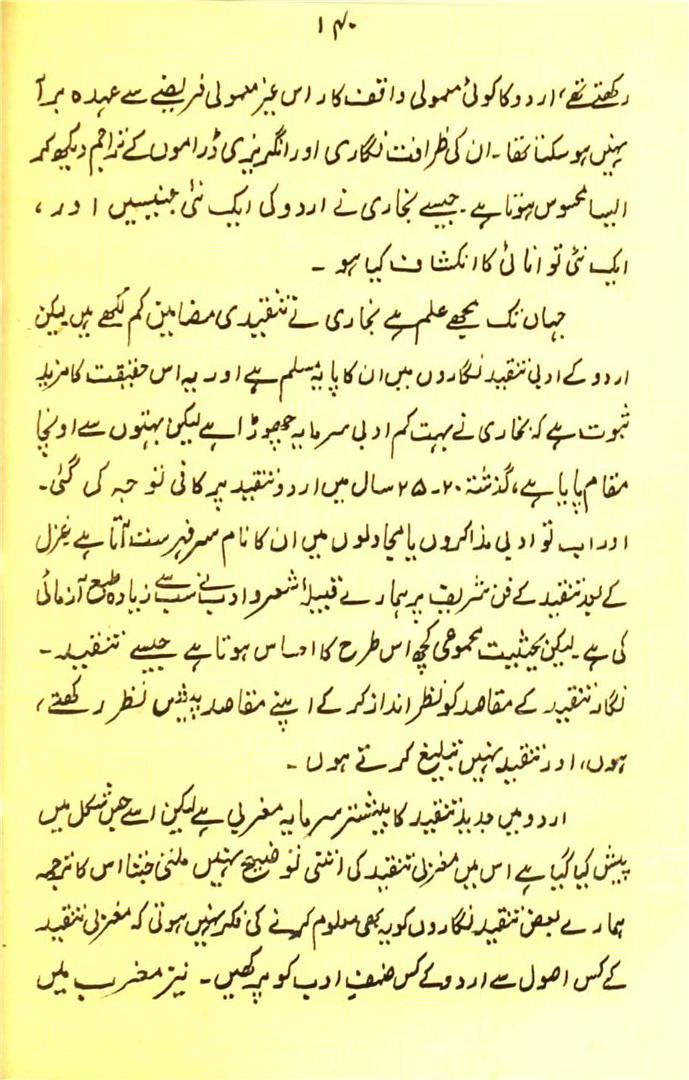 ۱۴۰
رکھتے تھے، اردو کا کوئی معمولی واقف کار اس غیر معمولی فریضے سے عہدہ برآ
نہیں ہو سکتا تھا۔ ان کی ظرافت نگاری اور انگریزی ڈراموں کے تراجم دیکھ کر
ایسا محسوس ہوتا ہے۔ جیسے بخاری نے اردو کی ایک نئی جنبشیں اور،
ایک نئی توانائی کا انکشاف کیا ہو ۔
جہاں تک مجھے علم ہے بخاری نے تنقیدی مضامین کم لکھے ہیں لیکن
اردو کے ادبی تنقید نگاروں میں ان کا پایہ مسلم ہے اور یہ اس حقیقت کا مزید
ثبوت ہے کہ بخاری نے بہت کم ادبی سرمایہ چھوڑا ہے لیکن بہتوں سے اونچا
مقام پایا ہے، گذشتہ ۲۰۔۲۵ سال میں اردو تنقید پر کافی توجہ کی گئی۔
اور اب تو ادبی مذاکروں یا مجادلوں میں ان کا نام سرفہرست آتا ہے غزل
کے بعد تنقید کے فن شریف پر ہمارے قبیلۂ شعر و ادب نے سب سے زیادہ طبع آزمائی
کی ہے۔ لیکن بحیثیت مجموعی کچھ اس طرح کا احساس ہوتا ہے جیسے تنقید۔
نگار تنقید کے مقاصد کو نظر انداز کر کے اپنے مقاصد پیش نظر رکھتے،
ہوں، اور تنقید نہیں تبلیغ کرتے ہوں ۔
اردو میں جدید تنقید کا بیشتر سرمایہ مغربی ہے لیکن اسے جس شکل میں
پیش کیا گیا ہے اس میں مغربی تنقید کی اتنی توضیح نہیں ملتی جتنا اس کا ترجمہ
ہمارے بعض تنقید نگاروں کو یہ بھی معلوم کرنے کی فکر نہیں ہوتی کہ مغربی تنقید
کے کس اصول سے اردو کے کس صنفِ ادب کو پرکھیں۔ نیز مغرب میں